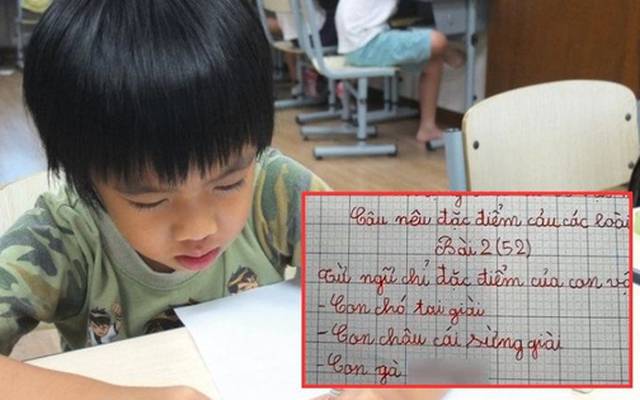 Câu nêu đặc điểm cảu các loài
Bài 2 (52)
Từ ngữ chỉ đặc điểm của con vậ
- Con chó tai giài
- Con châu cái sừng giài
- Con gà